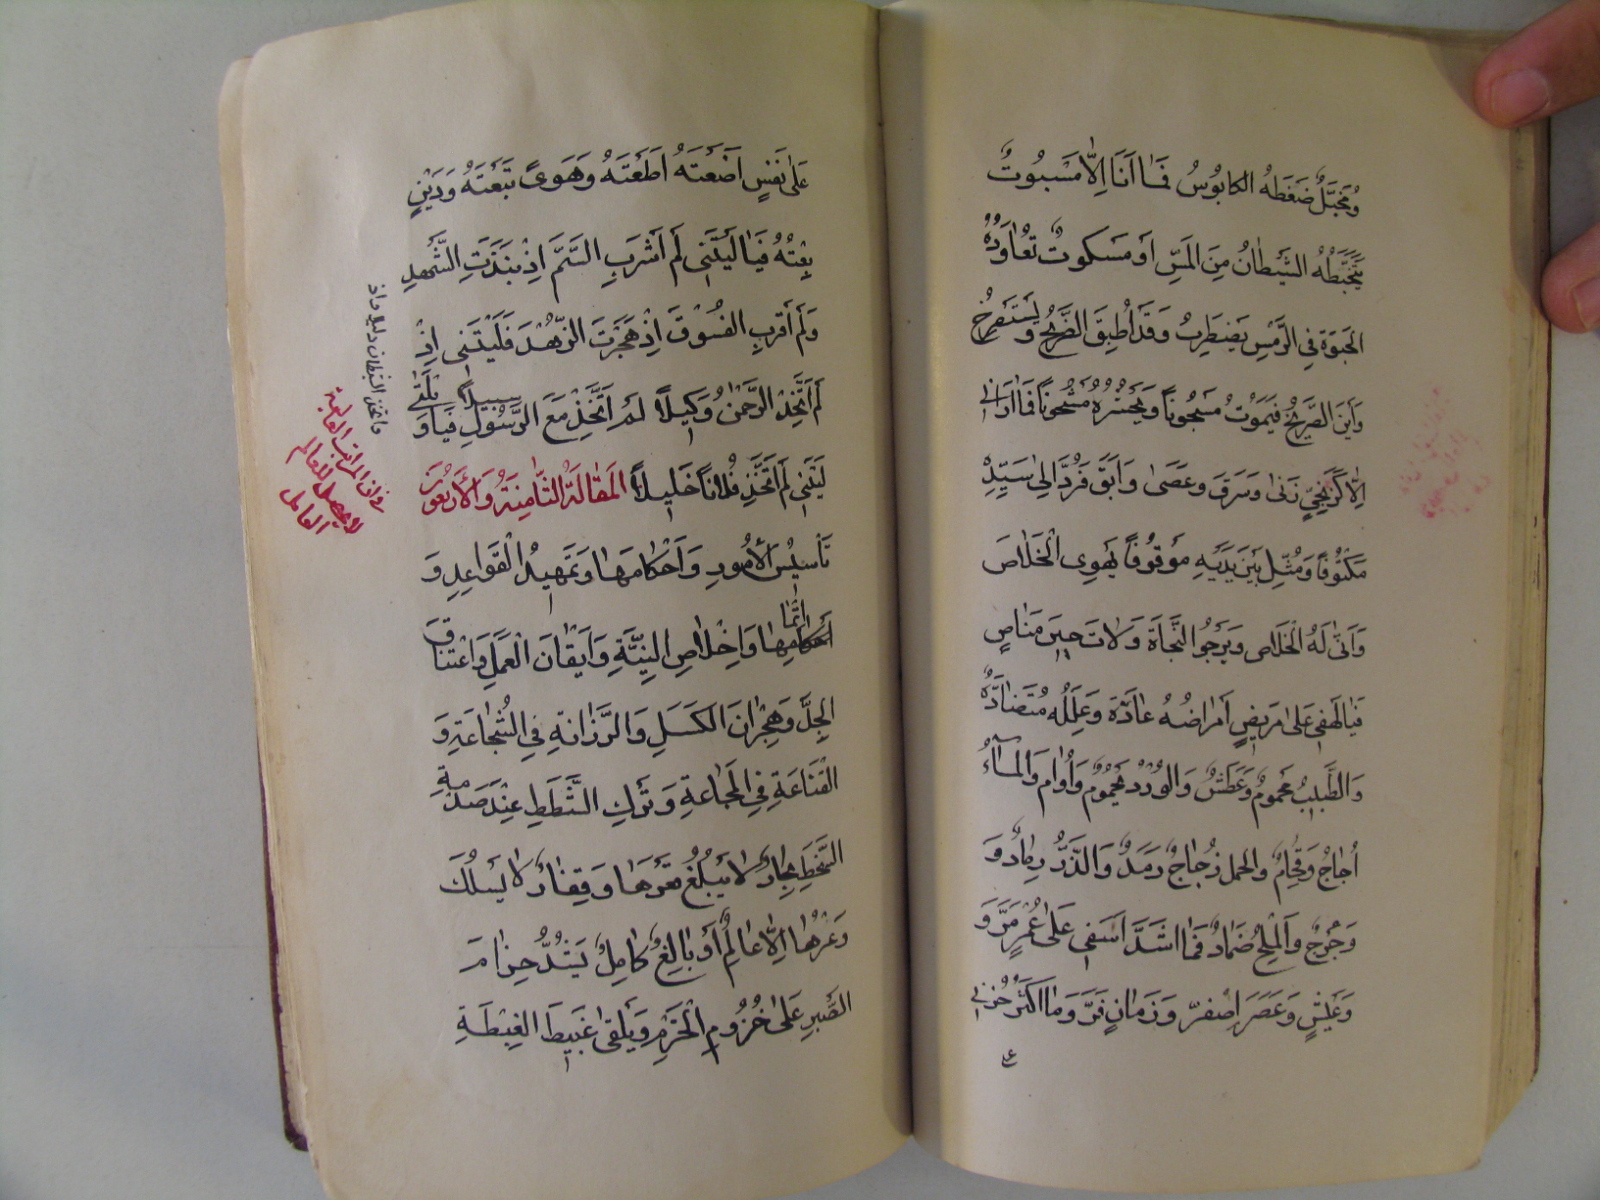 وَمُخَبَّلٌ ضَغَطَهُ الكابُوسُ فَمَا أَنَا إِلَّا مَسْبُوتٌ
يَتَخَبَّطُهُ الشَّيْطَانُ مِنَ المَسِّ أَوْ مَسْكوتٌ تُعَاوِدُهُ
فِي الرَّمْسِ يَضْطَرِبُ وَقَدْ أُطْبِقَ الضَّرِيحُ وَيَسْتَصْرِخُ
وَأَيْنَ الصَّرِيخُ فَيَمُوتُ مَسْجُونًا وَيُحْشَرُ مَشْجُونًا فَمَا أَرَانِي
إِلَّا كَزَنْجِيٍّ زَنَىٰ وَسَرَقَ وَعَصَىٰ وَأَبَقَ فَرُدَّ إِلَىٰ سَيِّدِهِ
مَكْتُوفًا وَمُثِّلَ بَيْنَ يَدَيْهِ مَوْقُوفًا يَهْوِى الْخَلَاصَ
وَأَنَّىٰ لَهُ الْخَلَاصُ وَيَرْجُو النَّجَاةَ وَلَاتَ حِينَ مَنَاصٍ
فَيَا لَهْفِي عَلَىٰ مَرِيضٍ أَمْرَاضُهُ عَادَّةٌ وَعِلَلُهُ مُتَضَادَّةٌ
وَالطَّبِيبُ مَحْمُومٌ وَعَطَشٌ وَالْوِرْدُ وَأُوَامٌ وَالْمَاءُ
أُجَاجٌ وَالكحل زُجَاجٌ وَرَمَدٌ وَالذَّرُّ رَمَادٌ وَ
وَجُرْحٌ وَالْمِلْحُ ضِمَادٌ فَمَا أَشَدَّ أَسَفِي عَلَىٰ عُمْرٍ مَرَّ وَ
وَعَيْشٍ وَعَصْرٍ اصْفَرَّ وَزَمَانٍ فَرَّ وَمَا أَكْثَرَ حُزْنِي
عَلَىٰ نَفْسٍ أَضَعْتُهُ أَطَعْتُهُ وَهَوَىً تَبِعْتُهُ وَدَيْنٍ
بِعْتُهُ فَيَا لَيْتَنِي لَمْ أَشْرَبِ السَّمَّ إِذْ نَبَذْتُ الشَّهْدِ
وَلَمْ أَقْرَبِ الفُسُوقَ إِذْ هَجَرْتُ الزُّهْدَ فَلَيْتَنِي إِذْ
لَمْ أَتَّخِذِ الرَّحْمٰنَ وَكِيلًا لَمْ أَتَّخِذْ مَعَ الرَّسُولِ سَبِيلًا فَيَا وَيْلَتَىٰ
لَيْتَنِي لَمْ أَتَّخِذْ فُلَانًا خَلِيلًا المَقَالَةُ الثَّامِنَةُ وَالْأَرْبَعُونَ
تَأْسِيسُ الْأُمُورِ وَأَحْكَامِهَا وَتَمْهِيدُ الْقَوَاعِدِ وَ
إِتْمَامِهَا وَإِخْلَاصِ النِّيَّةِ وَإِيقَانِ الْعَمَلِ وَاعْتِنَاقِ
الْجِدِّ وَهِجْرَانِ الْكَسَلِ وَالرَّزَانَةِ فِي الشَّجَاعَةِ وَ
الْقَنَاعَةِ فِي الْمَجَاعَةِ وَتَرْكِ الشَّطَطِ عِنْدَ صَدْمَةِ
السَّخَطِ بِحَارٌ لَا يُبْلَغُ قَعْرُهَا وَقِفَارٌ لَا يُسْلَكُ
وَعْرُهَا إِلَّا عَالِمٌ أَوْ بَالِغٌ كَامِلٌ يَشُدُّ حِزَامَ
الصَّبْرِ عَلَىٰ حُزُومِ الْحَزْمِ وَيُلْقِي غَبِيطَ الْغِبْطَةِ
واتخذ الشيطان دليلا واذ
فى ان المراتب العالية
لا تحصل للعالم
العامل